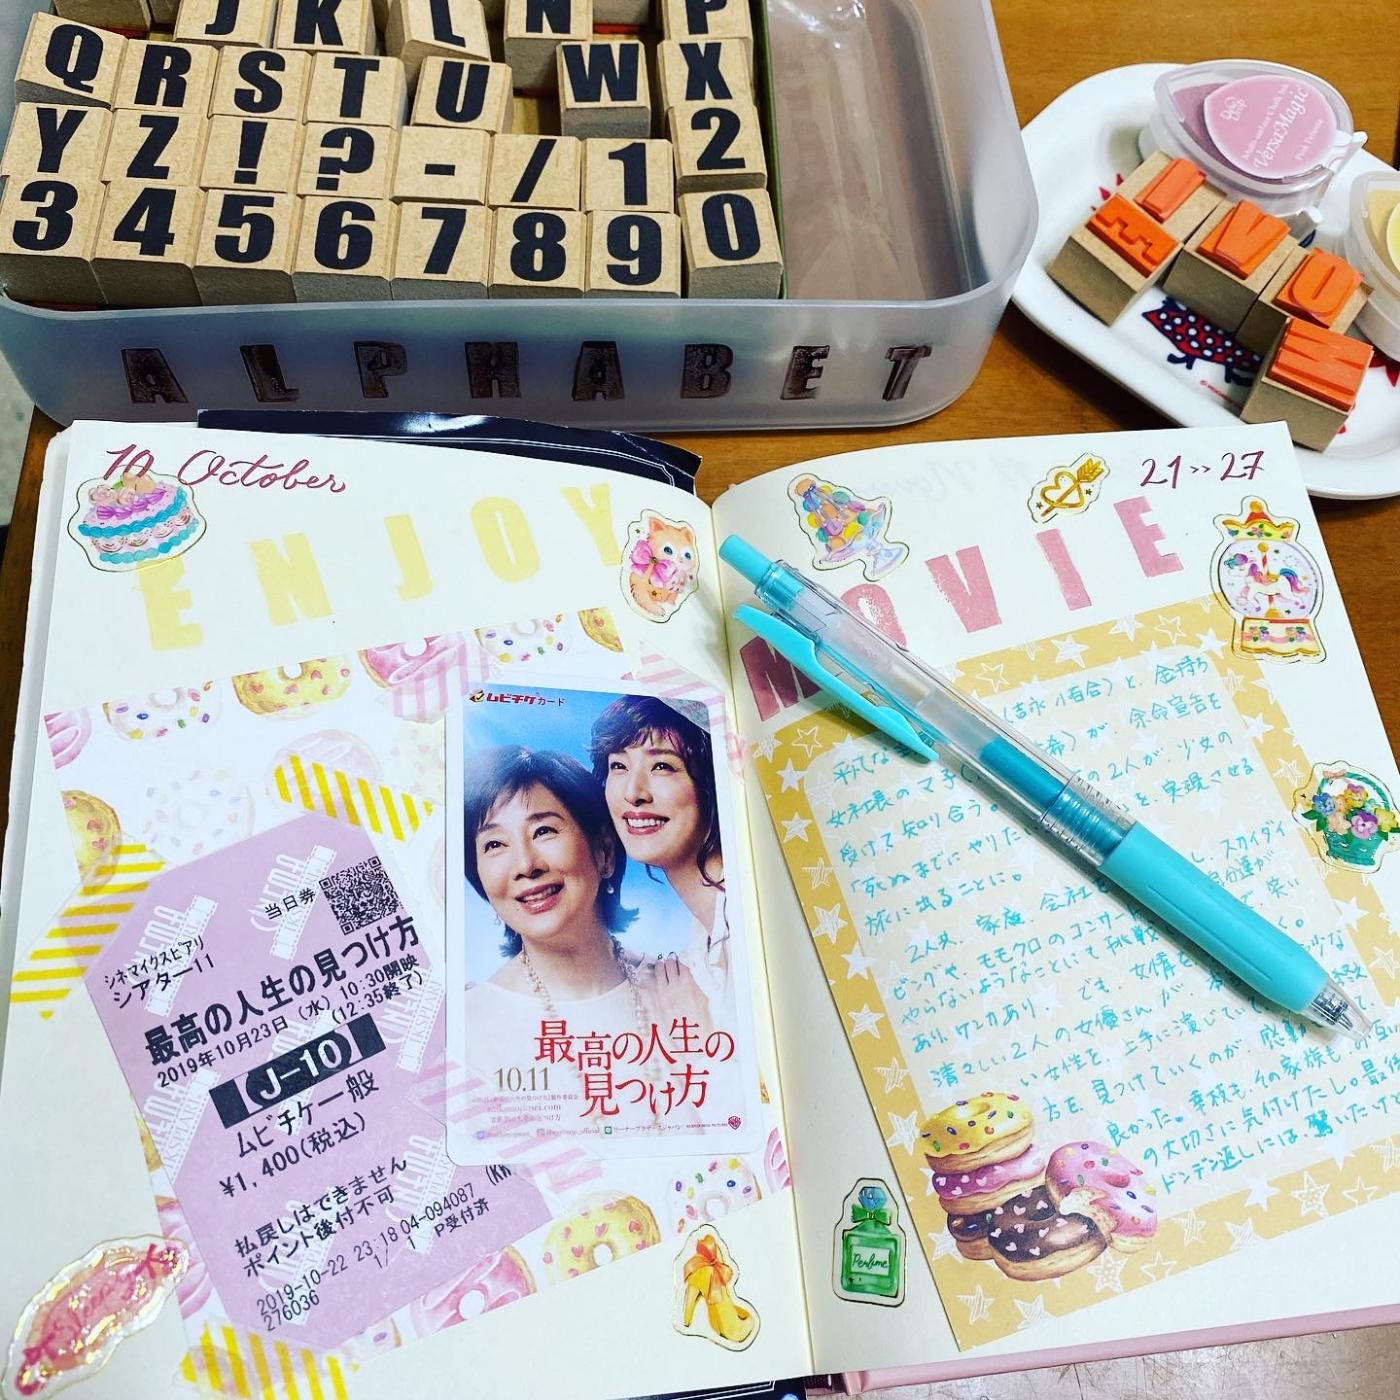 J K L N P
Q R S T U W X
Y Z ! ? - / 1 2
3 4 5 6 7 8 9 0
ALPHABET
VersaMagic
E I V O M
10 October
21>>27
ENJOY
MOVIE
当日券
シネマイクスピアリ
シアター11
最高の人生の見つけ方
2019年10月23日(水) 10:30開映
(12:35終了)
J-10
ムビチケ一般
¥1,400(税込)
払戻しはできません
ポイント後付不可
2019-10-22 23:18 04-094087
276036 1/ 1 P受付済
ムビチケカード
最高の人生の
見つけ方
10.11
(吉永小百合)と、金持ち
女社長のマ が、余命宣告を
受けて知り合う。 の2人が、少女の
「死ぬまでにやりた を、実現させる
旅に出ることに。
2人共、家庭、会社を し、スカイダイ
ビングや、ももクロのコンサート 自分達が
やらないようなことにも挑戦 で、笑い
あり、ケンカあり。 でも、友情を く。
清々しい2人の女優さんが、
い女性を、上手に演じていて、
方を、見つけていくのが、感動
良かった。幸枝も、その家族も、
の大切さに気付けたし。最後
ドンデン返しには、驚いたけど
Perfume